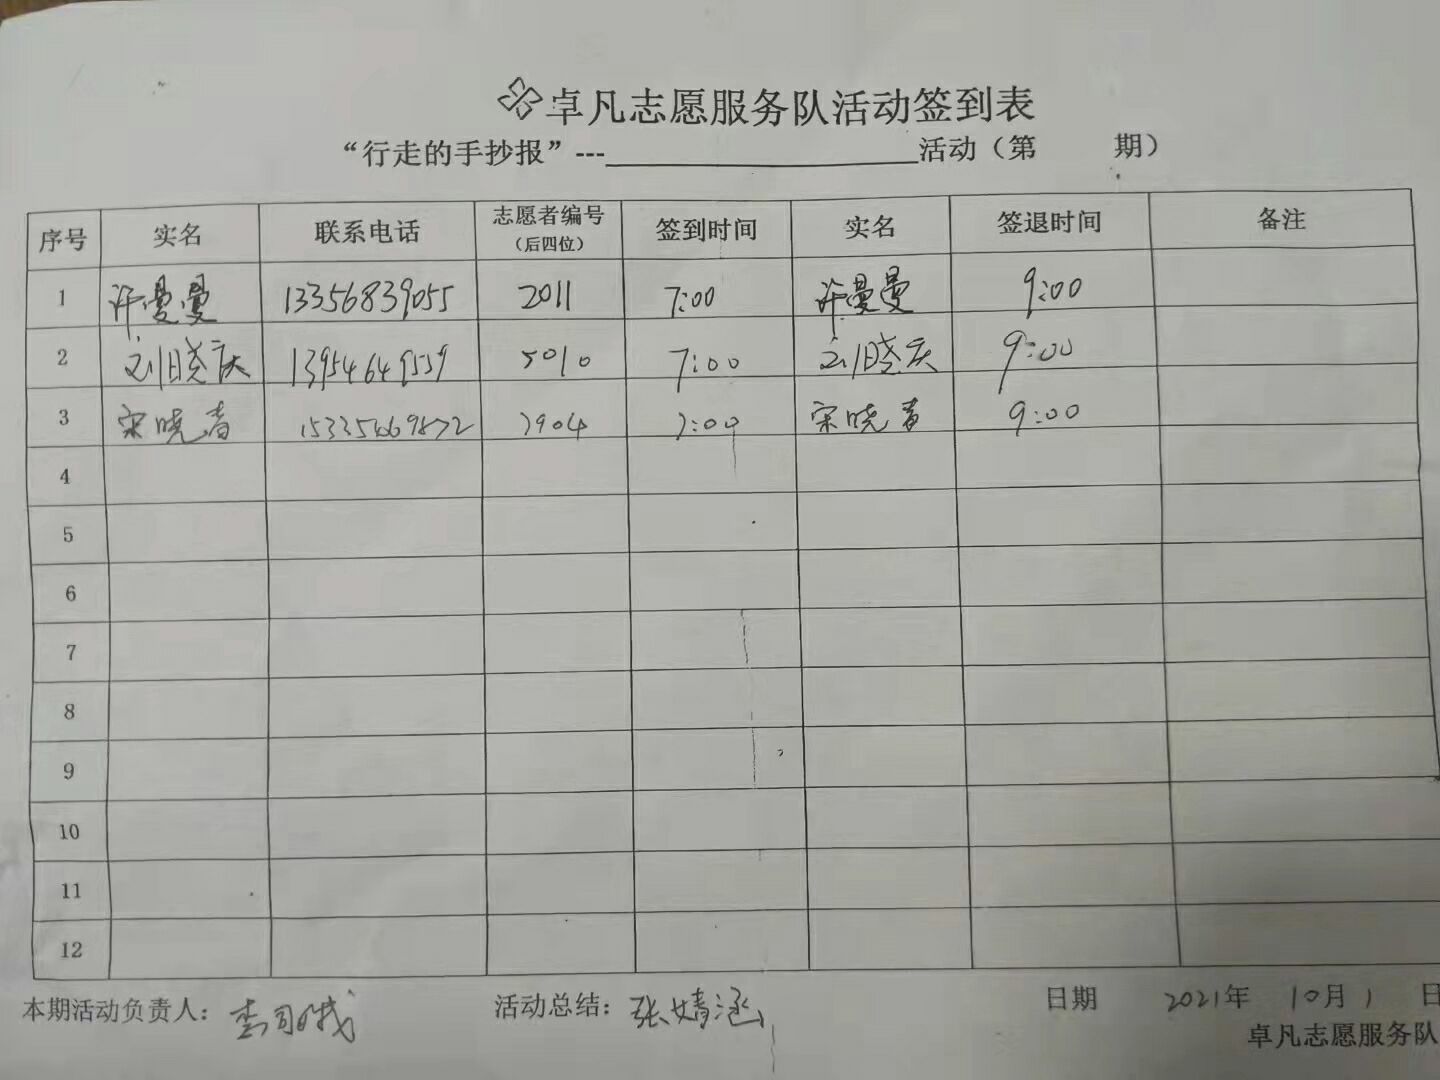 卓凡志愿服务队活动签到表
“行走的手抄报”---活动（第 期）
序号 实名 联系电话 志愿者编号（后四位） 签到时间 实名 签退时间 备注
1 许曼曼 13356839055 2011 7:00 许曼曼 9:00
2 刘晓庆 13954649559 5010 7:00 刘晓庆 9:00
3 宋晓春 7904 7:00 宋晓春 9:00
4
5
6
7
8
9
10
11
12
本期活动负责人： 活动总结：张婧涵 日期 2021年 10月 1 日
卓凡志愿服务队